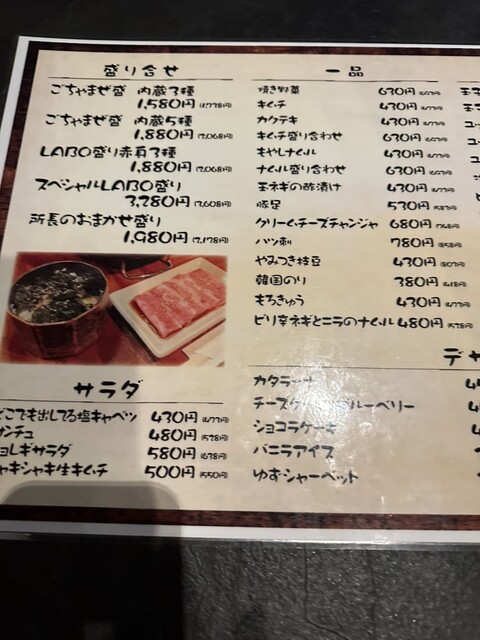 盛り合せ
ごちゃまぜ盛 内蔵3種
1,580円(1,738円)
ごちゃまぜ盛 内蔵5種
1,880円(2,068円)
LABO盛り赤身3種
1,880円(2,068円)
スペシャルLABO盛り
3,280円(3,608円)
所長のおまかせ盛り
1,980円(2,178円)
サラダ
どこでも出してる塩キャベツ 430円(473円)
サンチュ 480円(528円)
チョレギサラダ 580円(638円)
シャキシャキ生キムチ 500円(550円)
一品
焼き野菜 630円
キムチ 430円
カクテキ 430円
キムチ盛り合わせ 630円
もやしナムル 430円
ナムル盛り合わせ 630円
玉ネギの酢漬け 430円
豚足 530円(583円)
クリームチーズチャンジャ 680円(748円)
ハツ刺 780円(858円)
やみつき枝豆 430円
韓国のり 380円(418円)
もろきゅう 430円(473円)
ピリ辛ネギとニラのナムル 480円(528円)
デザ
カタラーナ
チーズケーキ ブルーベリー
ショコラケーキ
バニラアイス
ゆずシャーベット